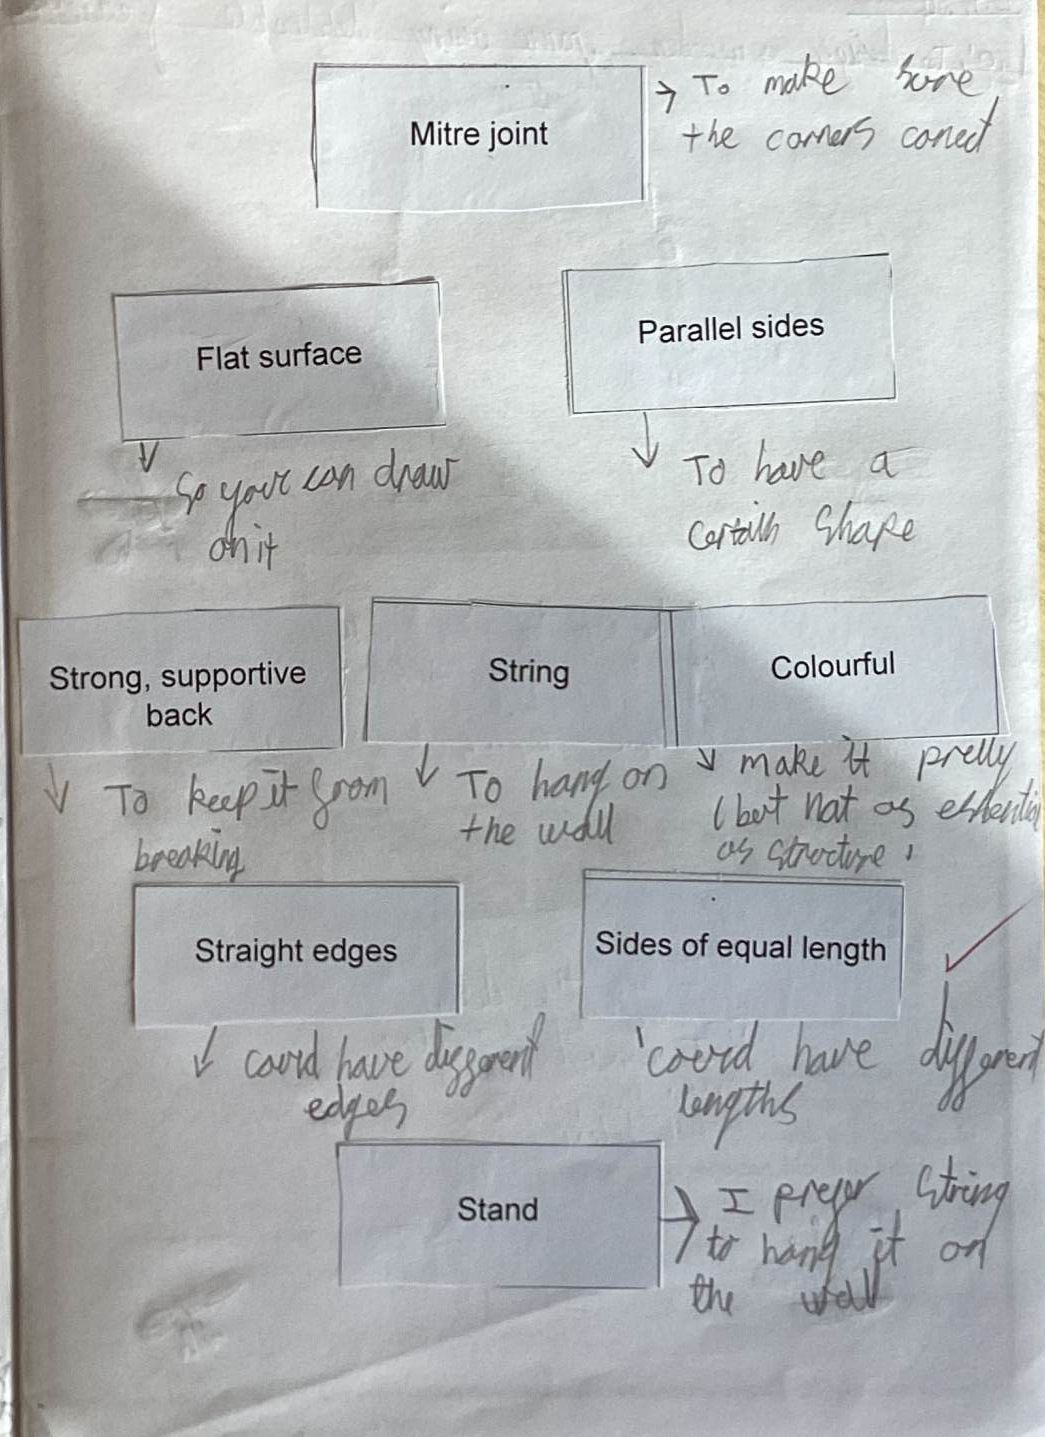 Mitre joint
→ To make sure
the corners conect
Flat surface
Parallel sides
So your can draw
on it
To have a
certain shape
Strong, supportive
back
String
Colourful
To keep it from
breaking
To hang on
the wall
make it pretty
(but not as essential
as structure)
Straight edges
Sides of equal length
could have different
edges
could have different
lengths
Stand
→ I prefer string
to hang it on
the wall